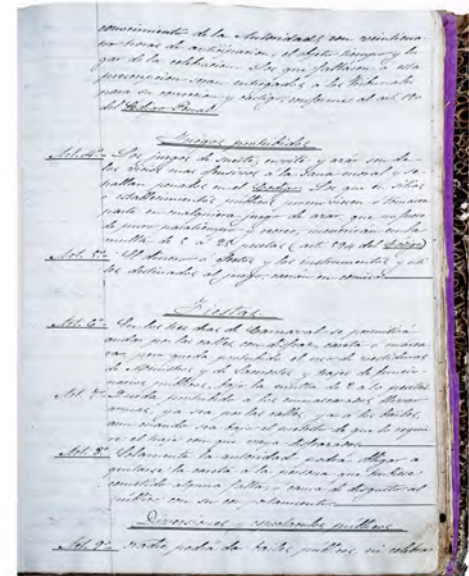 conocimiento de la Autoridad, con veinticua-
tro horas de anticipacion, el objeto, tiempo y lu-
gar de la celebracion. Los que faltaren a esta
prescripcion seran entregados a los Tribunales
para su correccion y castigo, conforme al art. 190
del Codigo Penal.
Juegos prohibidos
Art. 4º Los juegos de suerte, envite y azar son de
los vicios mas ofensivos a la sana moral y se
hallan penados en el Codigo. Los que en sitios
o establecimientos publicos promoviesen o tomaren
parte en cualquiera juego de azar, que no fuere
de puro pasatiempo y recreo, incurriran en la
multa de 5 a 25 pesetas (art. 594 del Codigo)
Art. 5º El dinero o efectos y los instrumentos y uti-
les destinados al juego, caeran en comiso.
Fiestas
Art. 6º En los tres dias de Carnaval se permitirá
andar por las calles con disfraz, careta o masca-
ra, pero queda prohibido el uso de vestiduras
de Ministros y de trajes de funcio-
narios publicos, bajo la multa de
Art. 7º Queda prohibido a los enmascarados llevar
armas, ya sea por las calles, ya a los bailes,
aun cuando sea bajo el pretexto de que lo requie-
re el traje con que vaya disfrazado.
Art. 8º Solamente la autoridad, podrá obligar a
quitarse la careta a la persona que hubiese
cometido alguna falta o causa de disgusto al
público con su
Diversiones y espectaculos publicos
Art. 9º Nadie podrá dar bailes públicos, ni celebrar